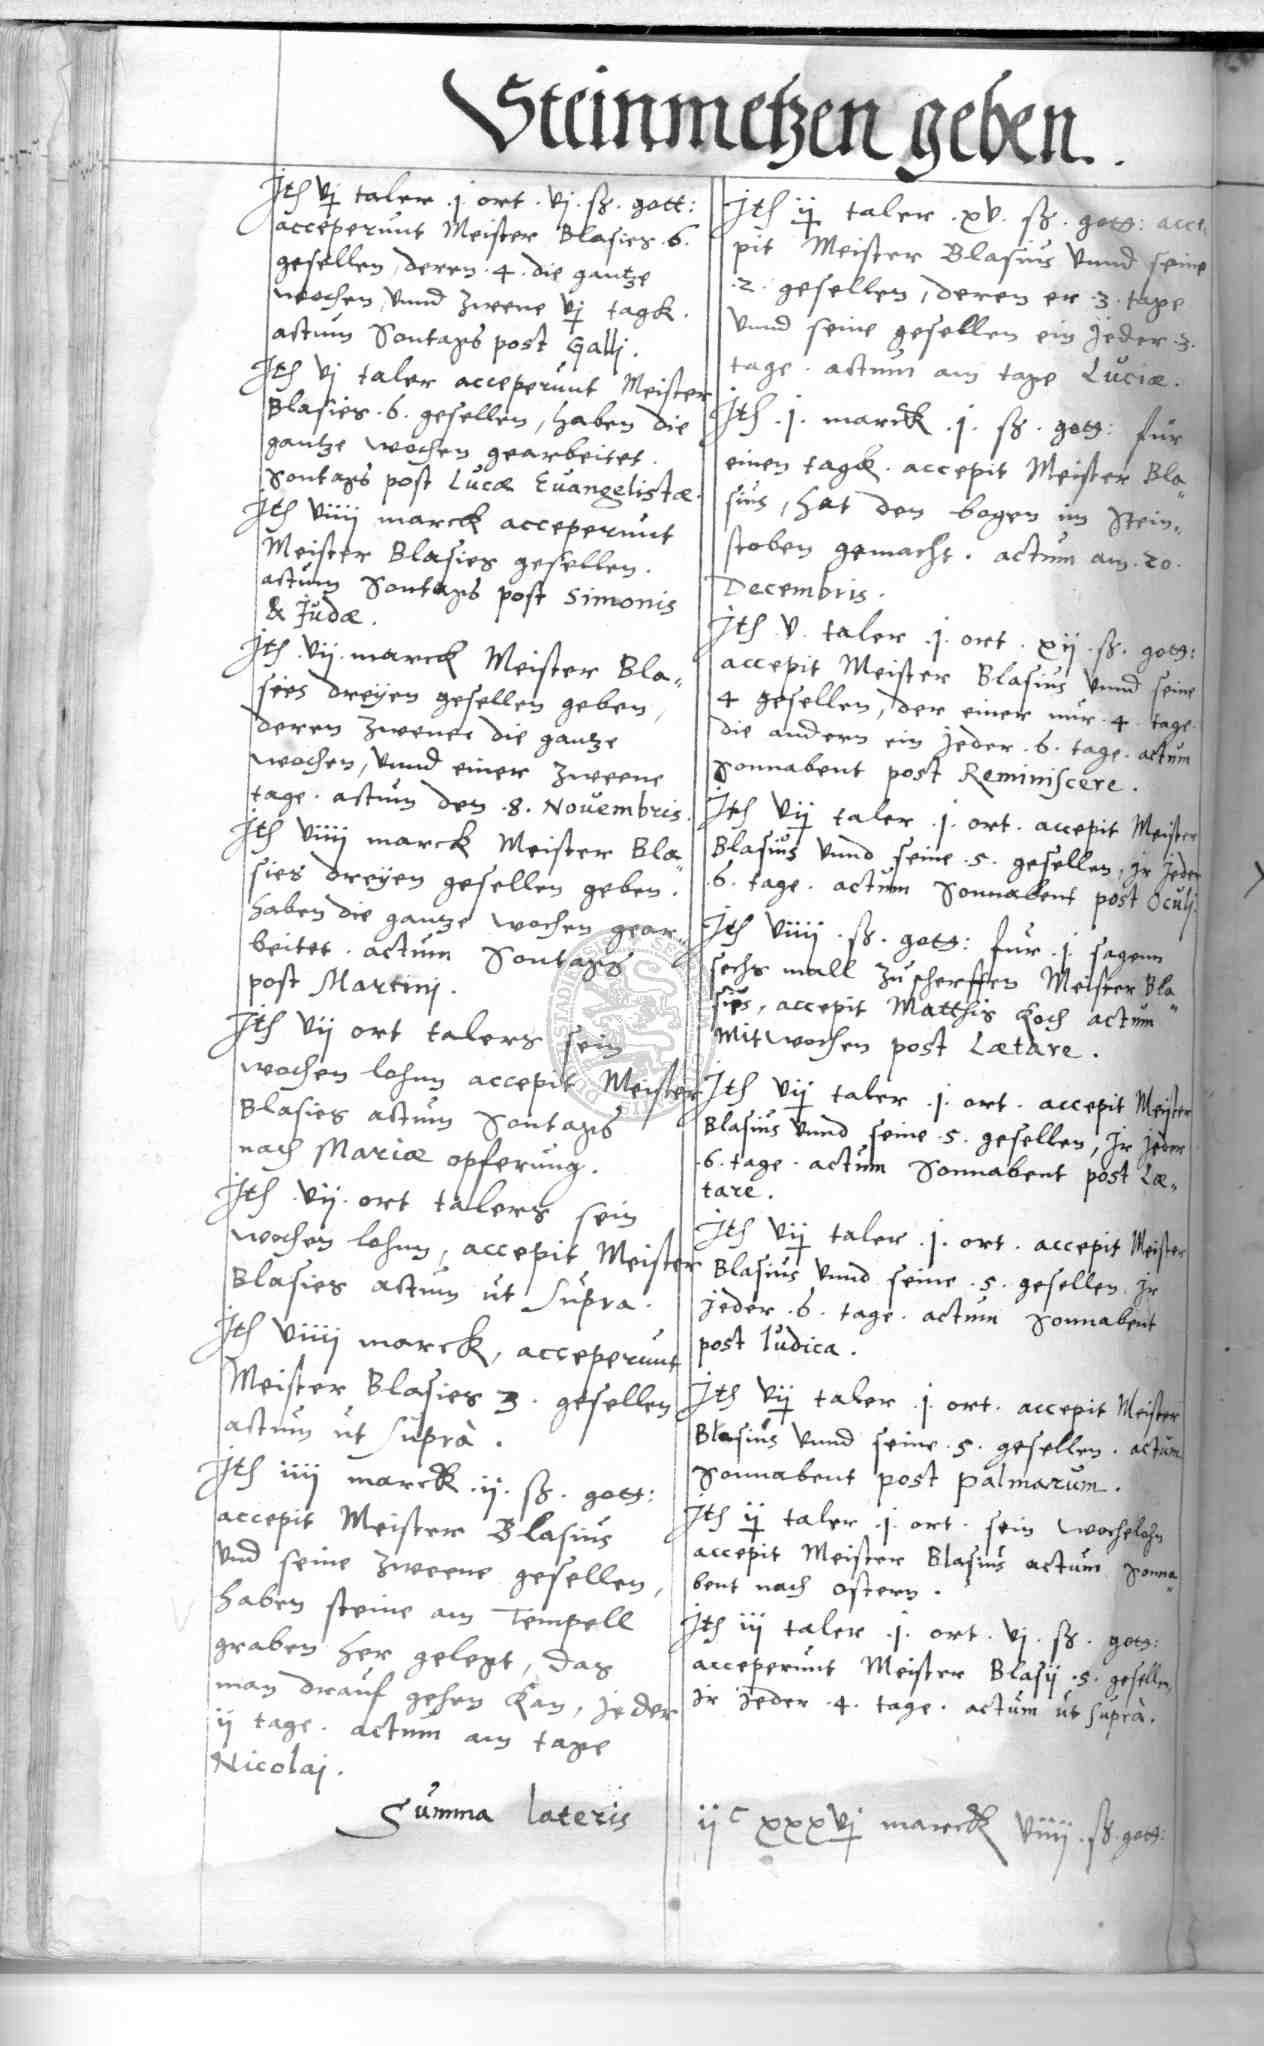 Steinmetzen geben.
Jth vj taler .j. ort . vj . ß . gott:
acceperunt Meister Blasies .6.
gesellen, deren .4. die gantze
wochen, vnnd zweene vj tagk.
actum Sontags post Galli.
Jth vj taler acceperunt Meister
Blasies .6. gesellen, haben die
gantze wochen gearbeitet.
Sontags post Lucæ Euangelistæ.
Jth viiij marck acceperunt
Meister Blasies gesellen.
actum Sontags post Simonis
& Judæ.
Jth .vij. marck Meister Bla„
sies dreÿen gesellen geben,
deren zweene die gantze
wochen, vnnd einer zweene
tage . actum den .8. Nouembris.
Jth viiij marck Meister Bla„
sies dreÿen gesellen geben.
haben die gantze wochen gear„
beitet . actum Sontags
post Martini.
Jth vij ort talers sein
wochen lohnn accepit Meister
Blasies actum Sontags
nach Mariæ opferung.
Jth .vij. ort talers sein
wochen lohnn, accepit Meister
Blasies actum ut supra.
Jth viiij marck, acceperunt
Meister Blasies 3. gesellen
actum ut suprà.
Jth iiij marck .ij. ß. gott:
accepit Meister Blasius
vnd seine zweene gesellen,
haben steine am Tempell
graben her gelegt, das
man drauf gehen kan, jeder
ij tage . actum am tage
Nicolaj.
Jth ij taler . xv . ß . gott: acce„
pit Meister Blasius vnnd seine
.2. gesellen, deren er .3. tage
vnnd seine gesellen ein jeder .3.
tage . actum am tage Luciæ.
Jth .j. marck .j. ß . gott: fur
einen tagk . accepit Meister Bla„
sius, hat den bogen im Stein„
stoben gemacht . actum am .20.
Decembris.
Jth .v. taler .j. ort . xij . ß . gott:
accepit Meister Blasius vnnd seine
4 gesellen, der einer nur .4. tage
die andern ein jeder .6. tage . actum
Sonnabent post Reminiscere.
Jth vij taler .j. ort . accepit Meister
Blasius vnnd seine .5. gesellen, jr jeder
.6. tage . actum Sonnabent post Oculj.
Jth viiij . ß . gott: fur .j. sagenn
sechs mall zu scherffen Meister Bla„
sies, accepit Matthis Koch actum
Mitwochen post Lætare.
Jth vij taler .j. ort . accepit Meister
Blasius vnnd seine .5. gesellen, jr jeder
.6. tage . actum Sonnabent post Læ„
tare.
Jth vij taler .j. ort . accepit Meister
Blasius vnnd seine .5. gesellen jr
jeder .6. tage . actum Sonnabent
post Iudica.
Jth vij taler .j. ort . accepit Meister
Blasius vnnd seine .5. gesellen . actum
Sonnabent post Palmarum.
Jth ij taler .j. ort . sein wochelohn
accepit Meister Blasius actum Sonna„
bent nach ostern.
Jth iij taler .j. ort . vj . ß . gott:
acceperunt Meister Blasij .5. gesellen,
jr jeder .4. tage . actum ut suprà.
Summa lateris ijᶜ xxxvj marck viiij . ß . gott: